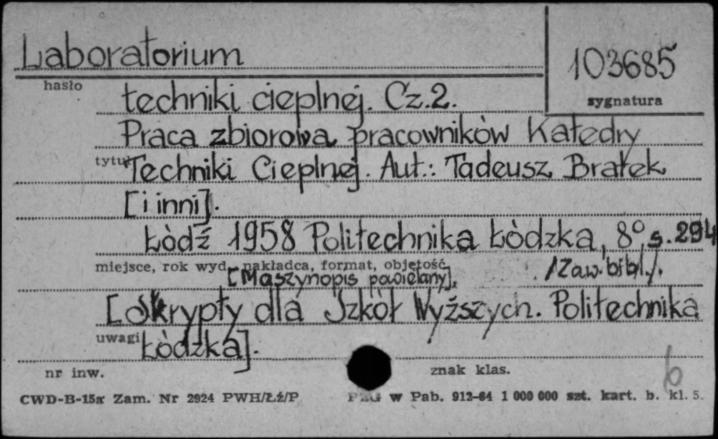 Laboratorium
103685
hasło
sygnatura
techniki cieplnej. Cz.2.
Praca zbiorowa pracowników Katedry
tytuł Techniki Cieplnej. Aut.: Tadeusz Bratek
[i inni].
Łódź 1958 Politechnika Łódzka, 8° s. 294
miejsce, rok wyd., nakładca, format, objętość
[Maszynopis powielany]. /Zaw. bibl./.
[Skrypty dla Szkół Wyższych. Politechnika
uwagi Łódzka].
nr inw.
znak klas.
b
CWD-B-15a Zam. Nr 2924 PWH/Łź/P
w Pab. 912-64 1 000 000 szt. kart. b. kl. 5.